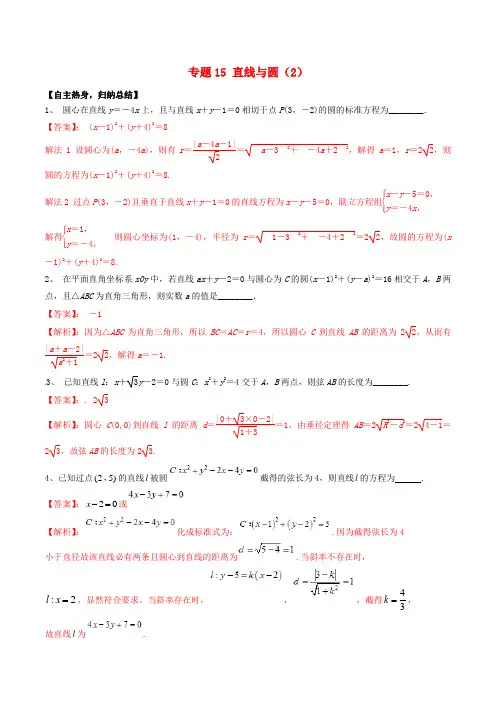 专题15 直线与圆（2）
【自主热身，归纳总结】
1、 圆心在直线y＝－4x上，且与直线x＋y－1＝0相切于点P(3，－2)的圆的标准方程为________.
【答案】： (x－1)²＋(y＋4)²＝8
解法1 设圆心为(a，－4a)，则有r＝|a－4a－1|/√2＝√(a－3)²＋(－4a＋2)²，解得a＝1，r＝2√2，则
圆的方程为(x－1)²＋(y＋4)²＝8.
解法2 过点P(3，－2)且垂直于直线x＋y－1＝0的直线方程为x－y－5＝0，联立方程组{x－y－5＝0，y＝－4x，
解得{x＝1，y＝－4， 则圆心坐标为(1，－4)，半径为r＝√(1－3)²＋(－4＋2)²＝2√2，故圆的方程为(x
－1)²＋(y＋4)²＝8.
2、 在平面直角坐标系xOy中，若直线ax＋y－2＝0与圆心为C的圆(x－1)²＋(y－a)²＝16相交于A，B两
点，且△ABC为直角三角形，则实数a的值是________.
【答案】： －1
【解析】：因为△ABC为直角三角形，所以BC＝AC＝r＝4，所以圆心C到直线AB的距离为2√2，从而有
|a＋a－2|/√a²＋1＝2√2，解得a＝－1.
3、 已知直线l：x＋√3y－2＝0与圆C：x²＋y²＝4交于A，B两点，则弦AB的长度为________.
【答案】：. 2√3
【解析】：圆心C(0,0)到直线l的距离d＝|0＋√3×0－2|/√1＋3＝1，由垂径定理得AB＝2√R²－d²＝2√4－1＝
2√3，故弦AB的长度为2√3.
4、已知过点(2，5)的直线l被圆C：x²＋y²－2x－4y＝0截得的弦长为4，则直线l的方程为______.
【答案】：x－2＝0或4x－3y＋7＝0
【解析】：C：x²＋y²－2x－4y＝0化成标准式为：C：(x－1)²＋(y－2)²＝5.因为截得弦长为4
小于直径故该直线必有两条且圆心到直线的距离为d＝√5－4＝1.当斜率不存在时，
l：x＝2，显然符合要求。当斜率存在时，l：y－5＝k(x－2)，d＝|3－k|/√1＋k²＝1，截得k＝4/3，
故直线l为4x－3y＋7＝0.